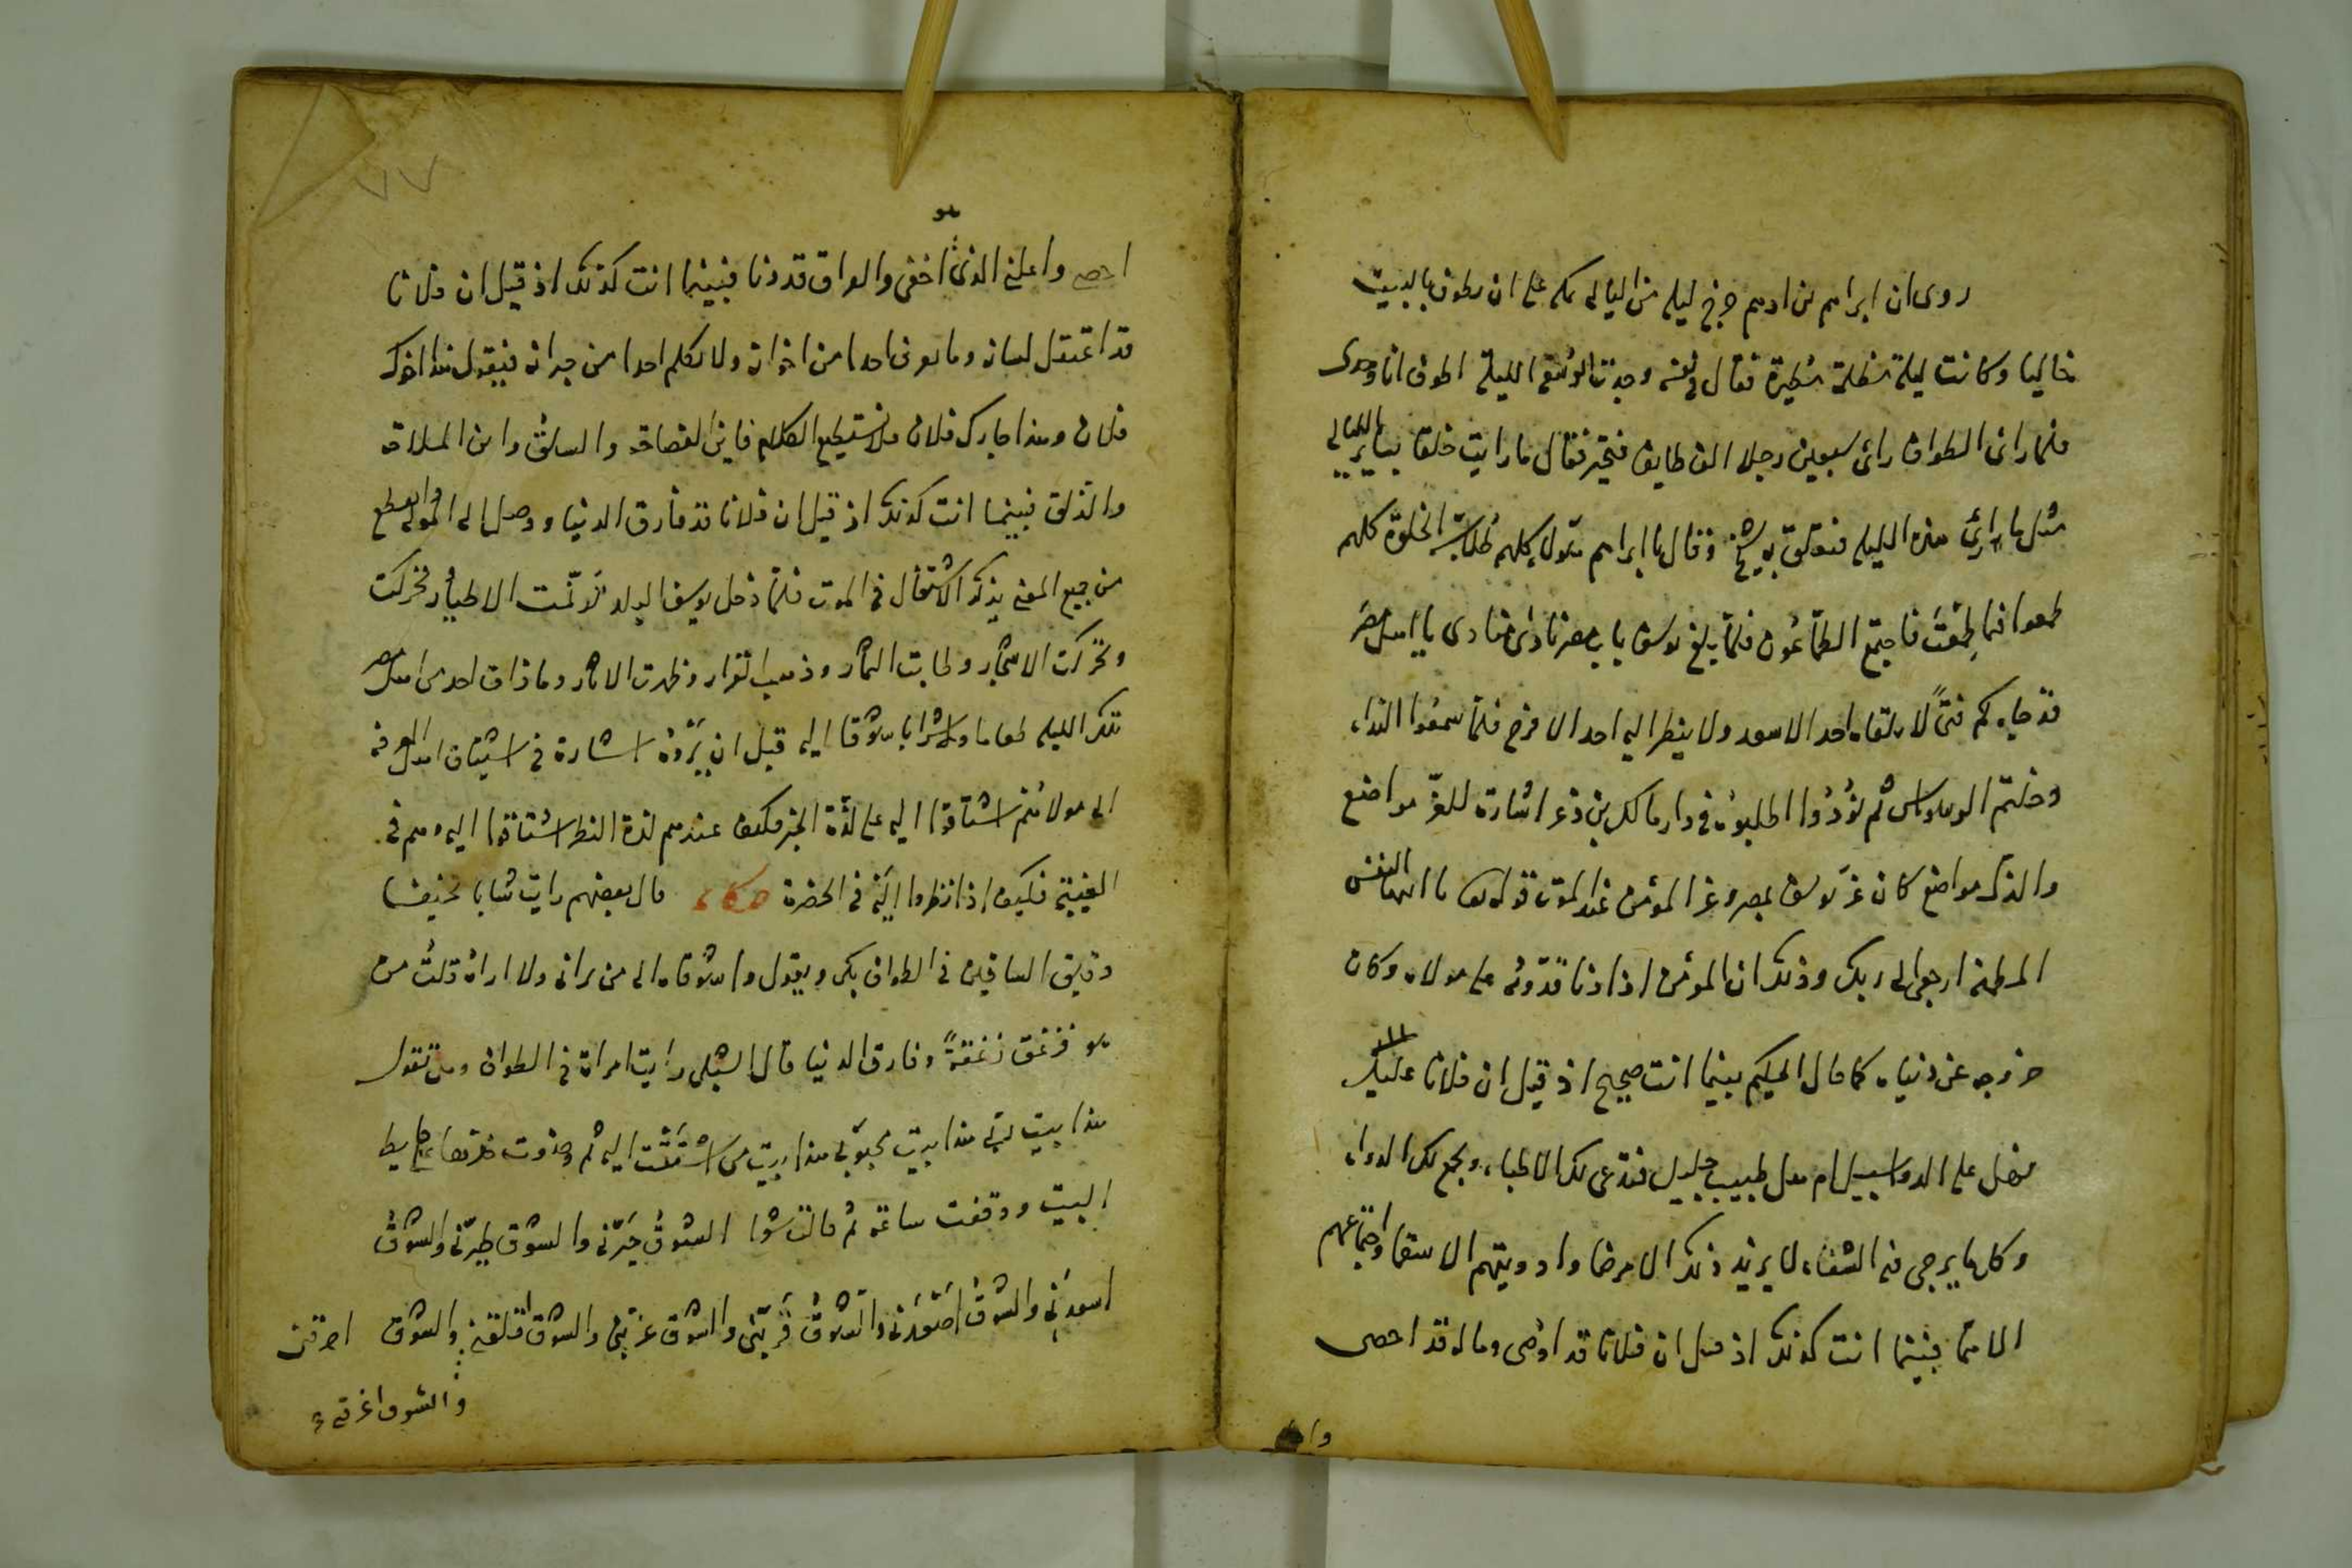 روى ان ابراهيم بن ادهم خرج ليلة من الليالى بمكة على ان يطوف بالبيت
خاليا وكانت ليلة مظلمة مطيرة فقال فى نفسه وجدت الوقت الليلة اطوف انا وحدى
فلما راى الطواف راى سبعين رجلا الف طايف فتحير فقال ما رايت خلقا بساير الليالى
مثل ما ارى هذه الليلة فتعلق به شيخ وقال يا ابراهيم هؤلاء كلهم طلاب الخلوة كلهم
طمعوا فيما طمعت فاجتمع الطماعون فلما بلغ يوسف باب مصر نادى منادى يا اهل مصر
قد جاءكم فتى لا يلقاه احد الا سعد ولا ينظر اليه احد الا فرح فلما سمعوا النداء
ثم نودوا اطلبوه فى دار مالك بن ذعر اشارة للعز مواضع
والذل مواضع كان عز يوسف بمصر وعز المؤمن عند الموت قوله تعالى يا ايتها النفس
المطمئنة ارجعى الى ربك وذلك ان المؤمن اذا دنا قدومه على مولاه وكان
خروجه عن دنياه كما قال الحكيم بينما انت صحيح اذ قيل ان فلانا عليل
فهل على الدواء سبيل ام هل طبيب جليل فتدعى لك الاطباء ويجمع لك الدواء
وكل ما يرجى فيه الشفاء لا يزيد ذلك الا مرضا وادويتهم الا سقما واجتماعهم
الا غما فبينما انت كذلك اذ قيل ان فلانا قد اوصى وماله قد احصى
احصى واعلن الذى هو اخفى والفراق قد دنا فبينما انت كذلك اذ قيل ان فلانا
قد اعتقل لسانه وما يعرف احدا من اخوانه ولا يكلم احدا من جيرانه فيقول هذا اخوك
فلان وهذا جارك فلان فلا تستطيع الكلام فاين الفصاحة والسلق واين الملاحة
والذلق فبينما انت كذلك اذ قيل ان فلانا قد فارق الدنيا ووصل الى المولى وانقطع
من جميع المنى يذكر الاشتغال فى الموت فلما دخل يوسف البلد ترنمت الاطيار وتحركت
وتحركت الاشجار وطابت الثمار وذهب القرار وظهرت الاثار وما ذاق احد من اهل مصر
تلك الليلة طعاما ولا شرابا شوقا اليه قبل ان يروه اشارة فى اشتياق اهل المعرفة
الى مولائهم اشتاقوا اليه على لذة الخبر فكيف عندهم لذة النظر اشتاقوا اليه وهم فى
الغيبة فكيف اذا نظروا اليه فى الحضرة حكاية قال بعضهم رايت شابا نحيفا
دقيق الساقين فى الطواف يبكى ويقول واشوقاه الى من يرانى ولا اراه قلت من
هو فزعق زعقة وفارق الدنيا قال الشبلى رايت امراة فى الطواف وهى تقول
هذا بيت ربى هذا بيت محبوبى هذا بيت من اشتقت اليه ثم وضعت خدها على حايط
البيت ووقفت ساعة ثم قالت شعرا الشوق حيرنى والشوق طيرنى والشوق
اسهدنى والشوق اقعدنى والشوق قربنى والشوق غربنى والشوق اقلقنى والشوق احرقنى
والشوق اغرقنى